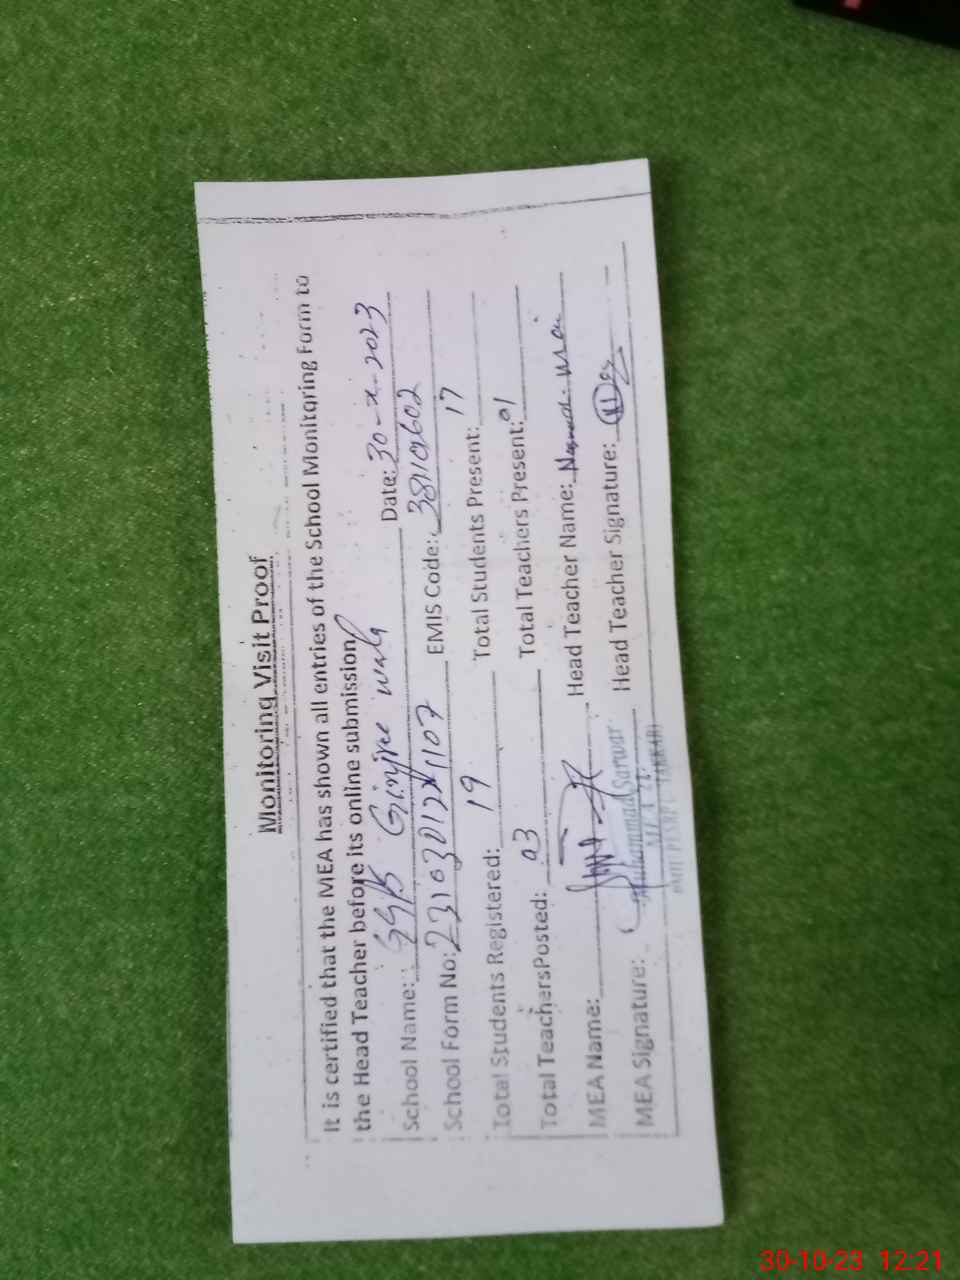 Monitoring Visit Proof
It is certified that the MEA has shown all entries of the School Monitoring Form to
the Head Teacher before its online submission
School Name: Date: 30-x-2023
School Form No: EMIS Code:
Total Students Registered: 19 Total Students Present: 17
Total Teachers Posted: 03 Total Teachers Present: 01
MEA Name: Head Teacher Name:
MEA Signature: Head Teacher Signature:
Muhammad Sarwar
30-10-23 12:21